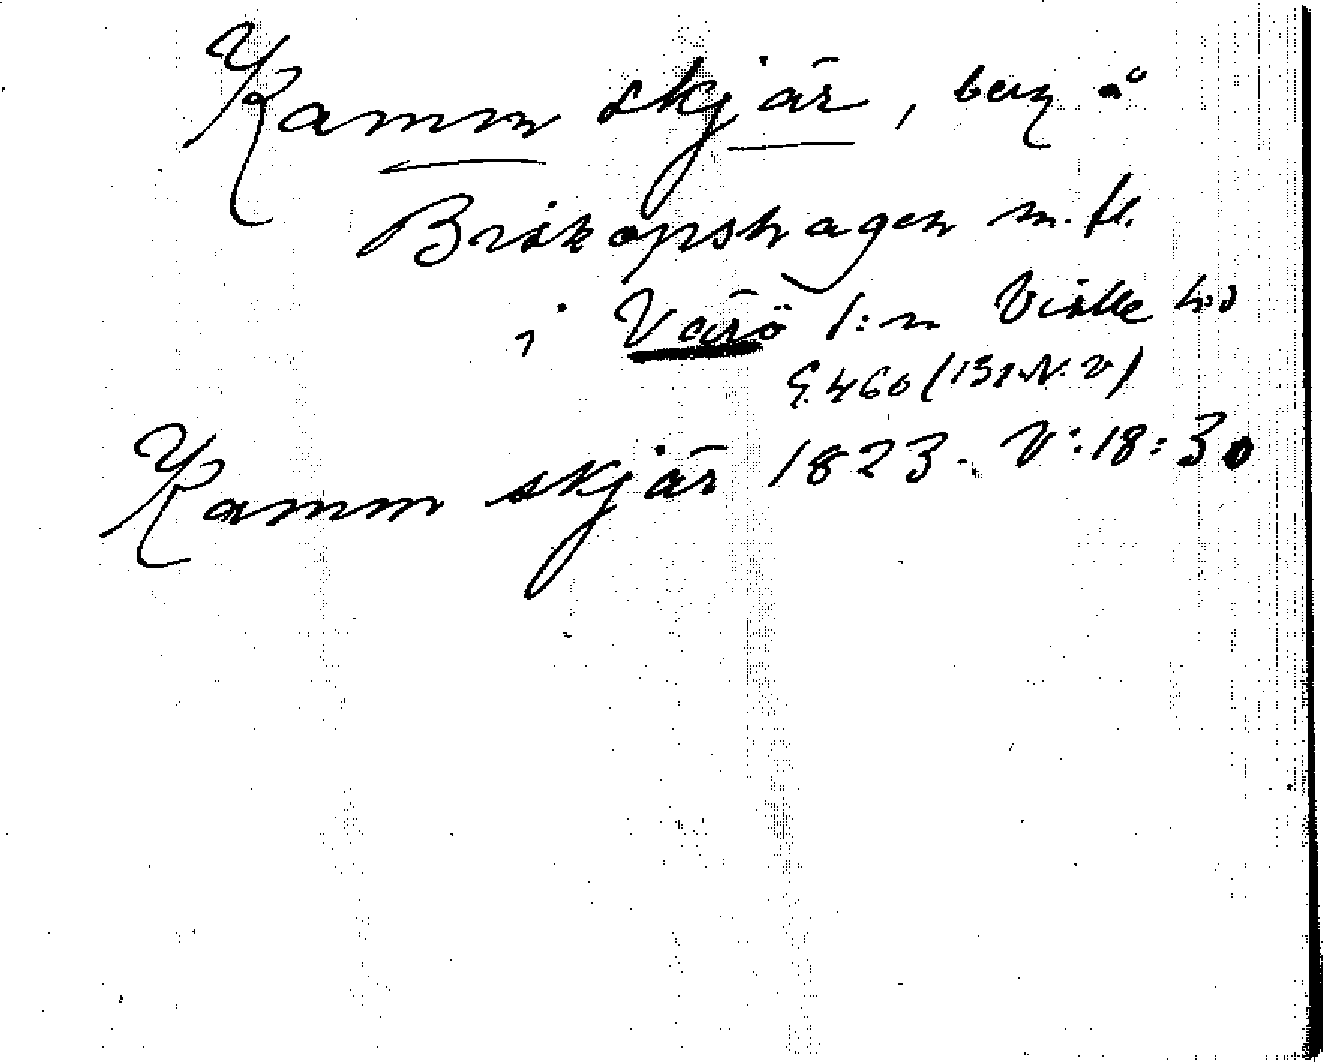 Kamm skjär, berg å
Biskopshagen m.fl.
i Värö s:n Viske hd
G. 460 (13 N.V)
Kamm skjär 1823. V:18:30